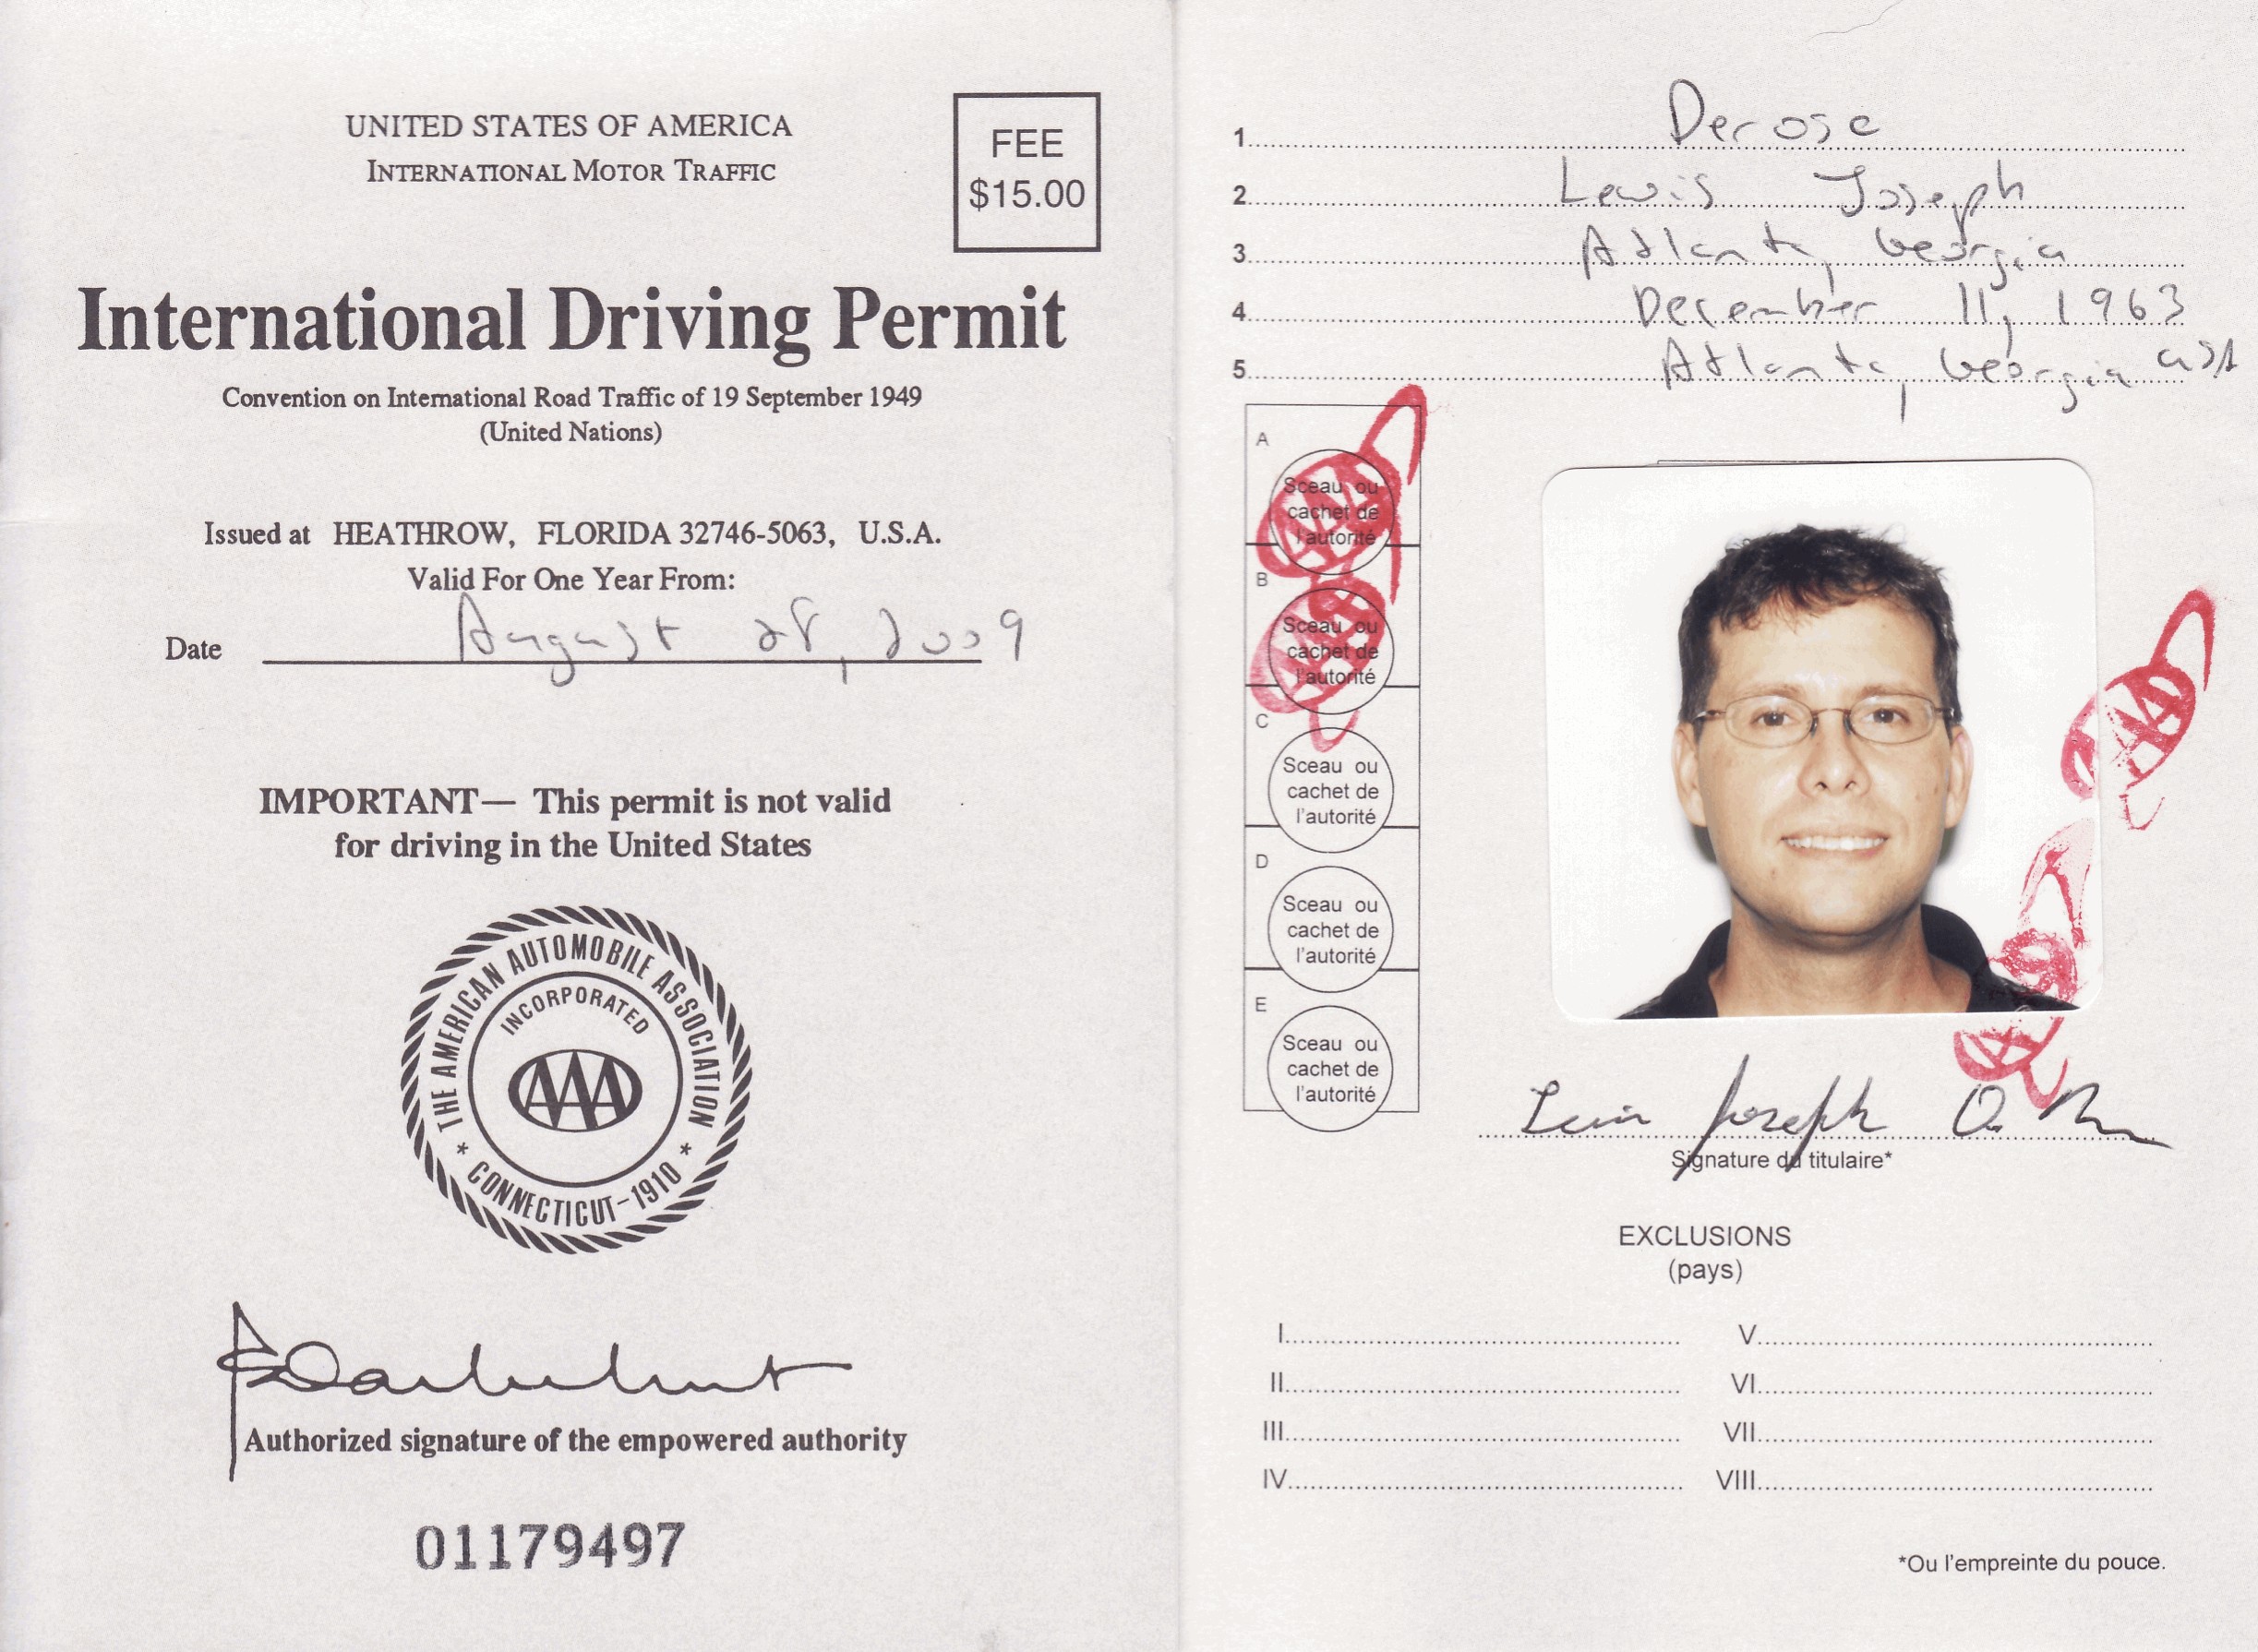 UNITED STATES OF AMERICA
INTERNATIONAL MOTOR TRAFFIC
FEE
$15.00
International Driving Permit
Convention on International Road Traffic of 19 September 1949
(United Nations)
Issued at HEATHROW, FLORIDA 32746-5063, U.S.A.
Valid For One Year From:
Date August 28, 2009
IMPORTANT— This permit is not valid
for driving in the United States
THE AMERICAN AUTOMOBILE ASSOCIATION
INCORPORATED
AAA
* CONNECTICUT-1910 *
Authorized signature of the empowered authority
01179497
1. Derose
2. Lewis Joseph
3. Atlanta, Georgia
4. December 11, 1963
5. Atlanta, Georgia USA
A
Sceau ou
cachet de
l'autorité
AAA
B
Sceau ou
cachet de
l'autorité
AAA
C
Sceau ou
cachet de
l'autorité
D
Sceau ou
cachet de
l'autorité
E
Sceau ou
cachet de
l'autorité
AAA
Joseph
Signature du titulaire*
EXCLUSIONS
(pays)
I. V.
II. VI.
III. VII.
IV. VIII.
*Ou l'empreinte du pouce.